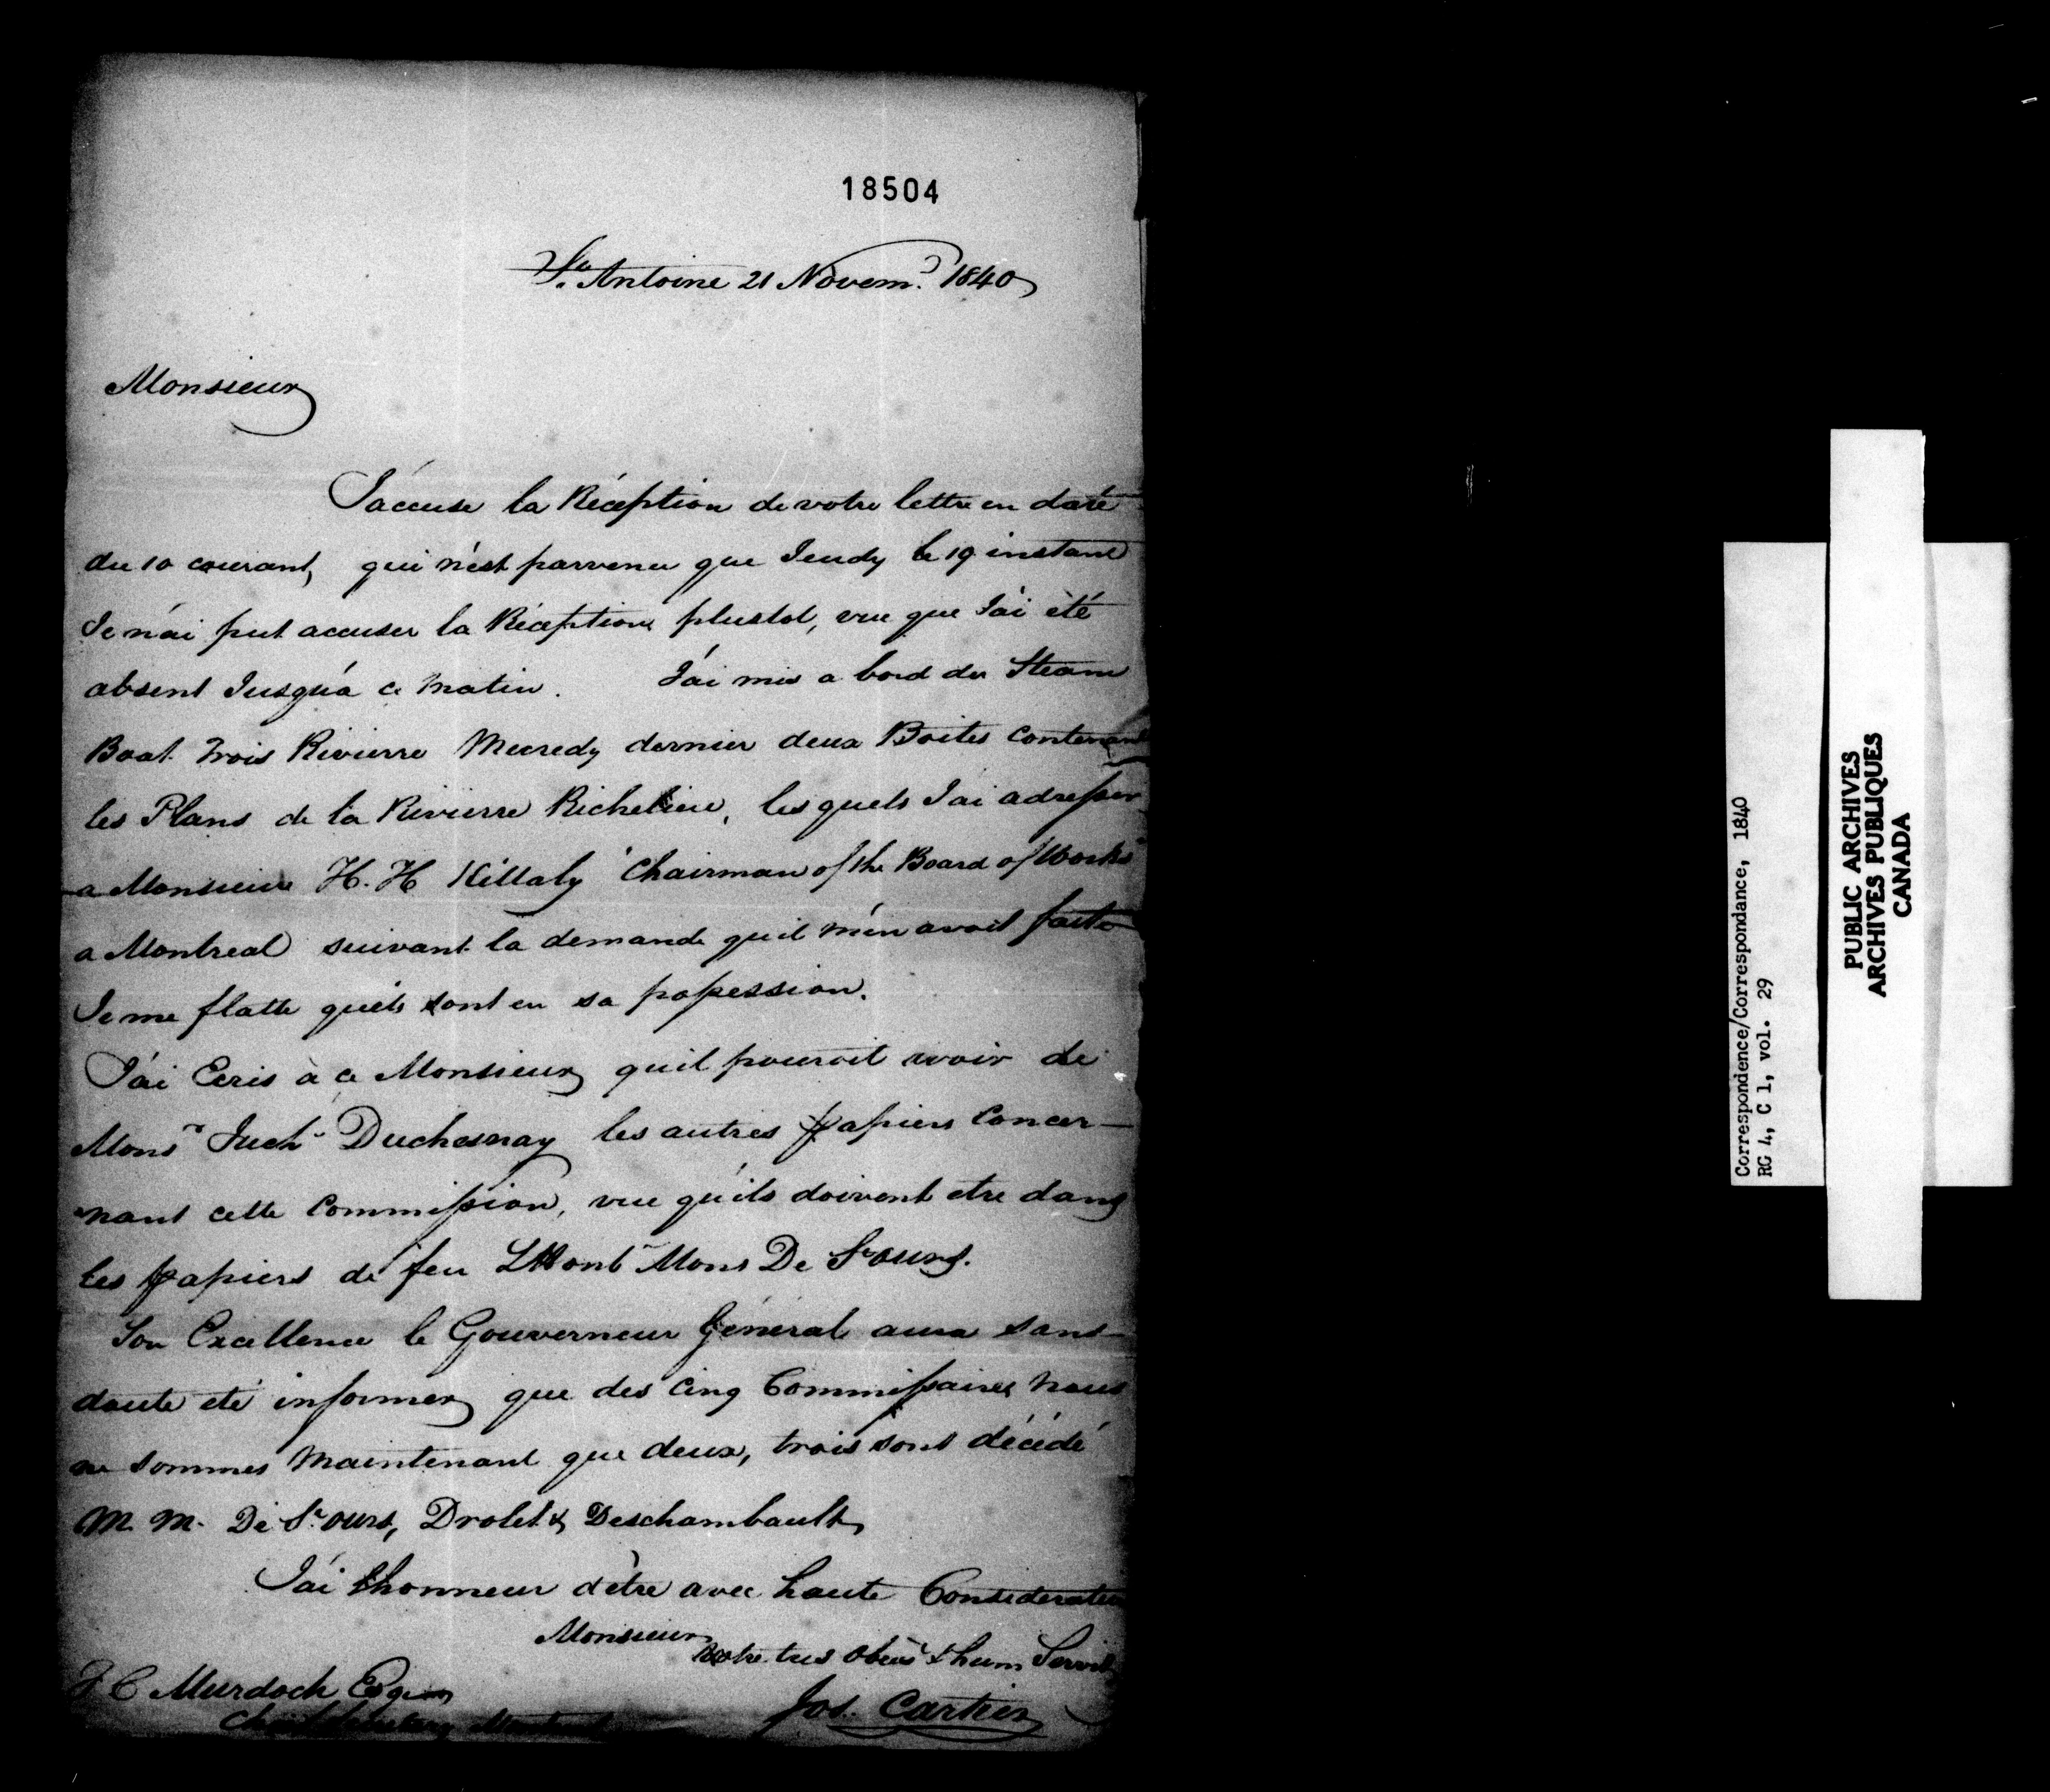 18504
St. Antoine 21 Novem. 1840
Monsieur
J'accuse la Réception de votre lettre en date
du 10 courant, qui n'est parvenu que Jeudy le 19 instant
Je n'ai put accuser la Réception plustot, vue que J'ai été
absent Jusqu'a ce matin. J'ai mis a bord du Steam
Boat Trois Rivierre Mecredy dernier deux Boites contenant
les Plans de la Rivierre Richelieu, les quels J'ai adresser
a Monsieur H. H Killaly "Chairman of the Board of Works"
a Montreal suivant la demande qu'il m'en avoit faite
Je me flatte qu'ils sont en sa possession.
J'ai Ecris à ce Monsieur qu'il pouroit avoir de
Monsr Juchr Duchesnay les autres papiers Concer-
nant cette Commission, vue qu'ils doivent etre dans
les papiers de feu LHonb Mons De St ours.
Son Excellence le Gouverneur Général aura sans
doute eté informer que des Cinq Commissaires nous
ne sommes maintenant que deux, trois sont décédé
M. M. De St. ours, Drolet & Deschambault
J'ai lhonneur d'etre avec haute Consideration
Monsieur
Votre tres Obeis & hum Servit
Jos. Cartier
C Murdoch Esqr
Chief Secretary Montreal
Correspondence/Correspondance, 1840
RG 4, C 1, vol. 29
PUBLIC ARCHIVES
ARCHIVES PUBLIQUES
CANADA